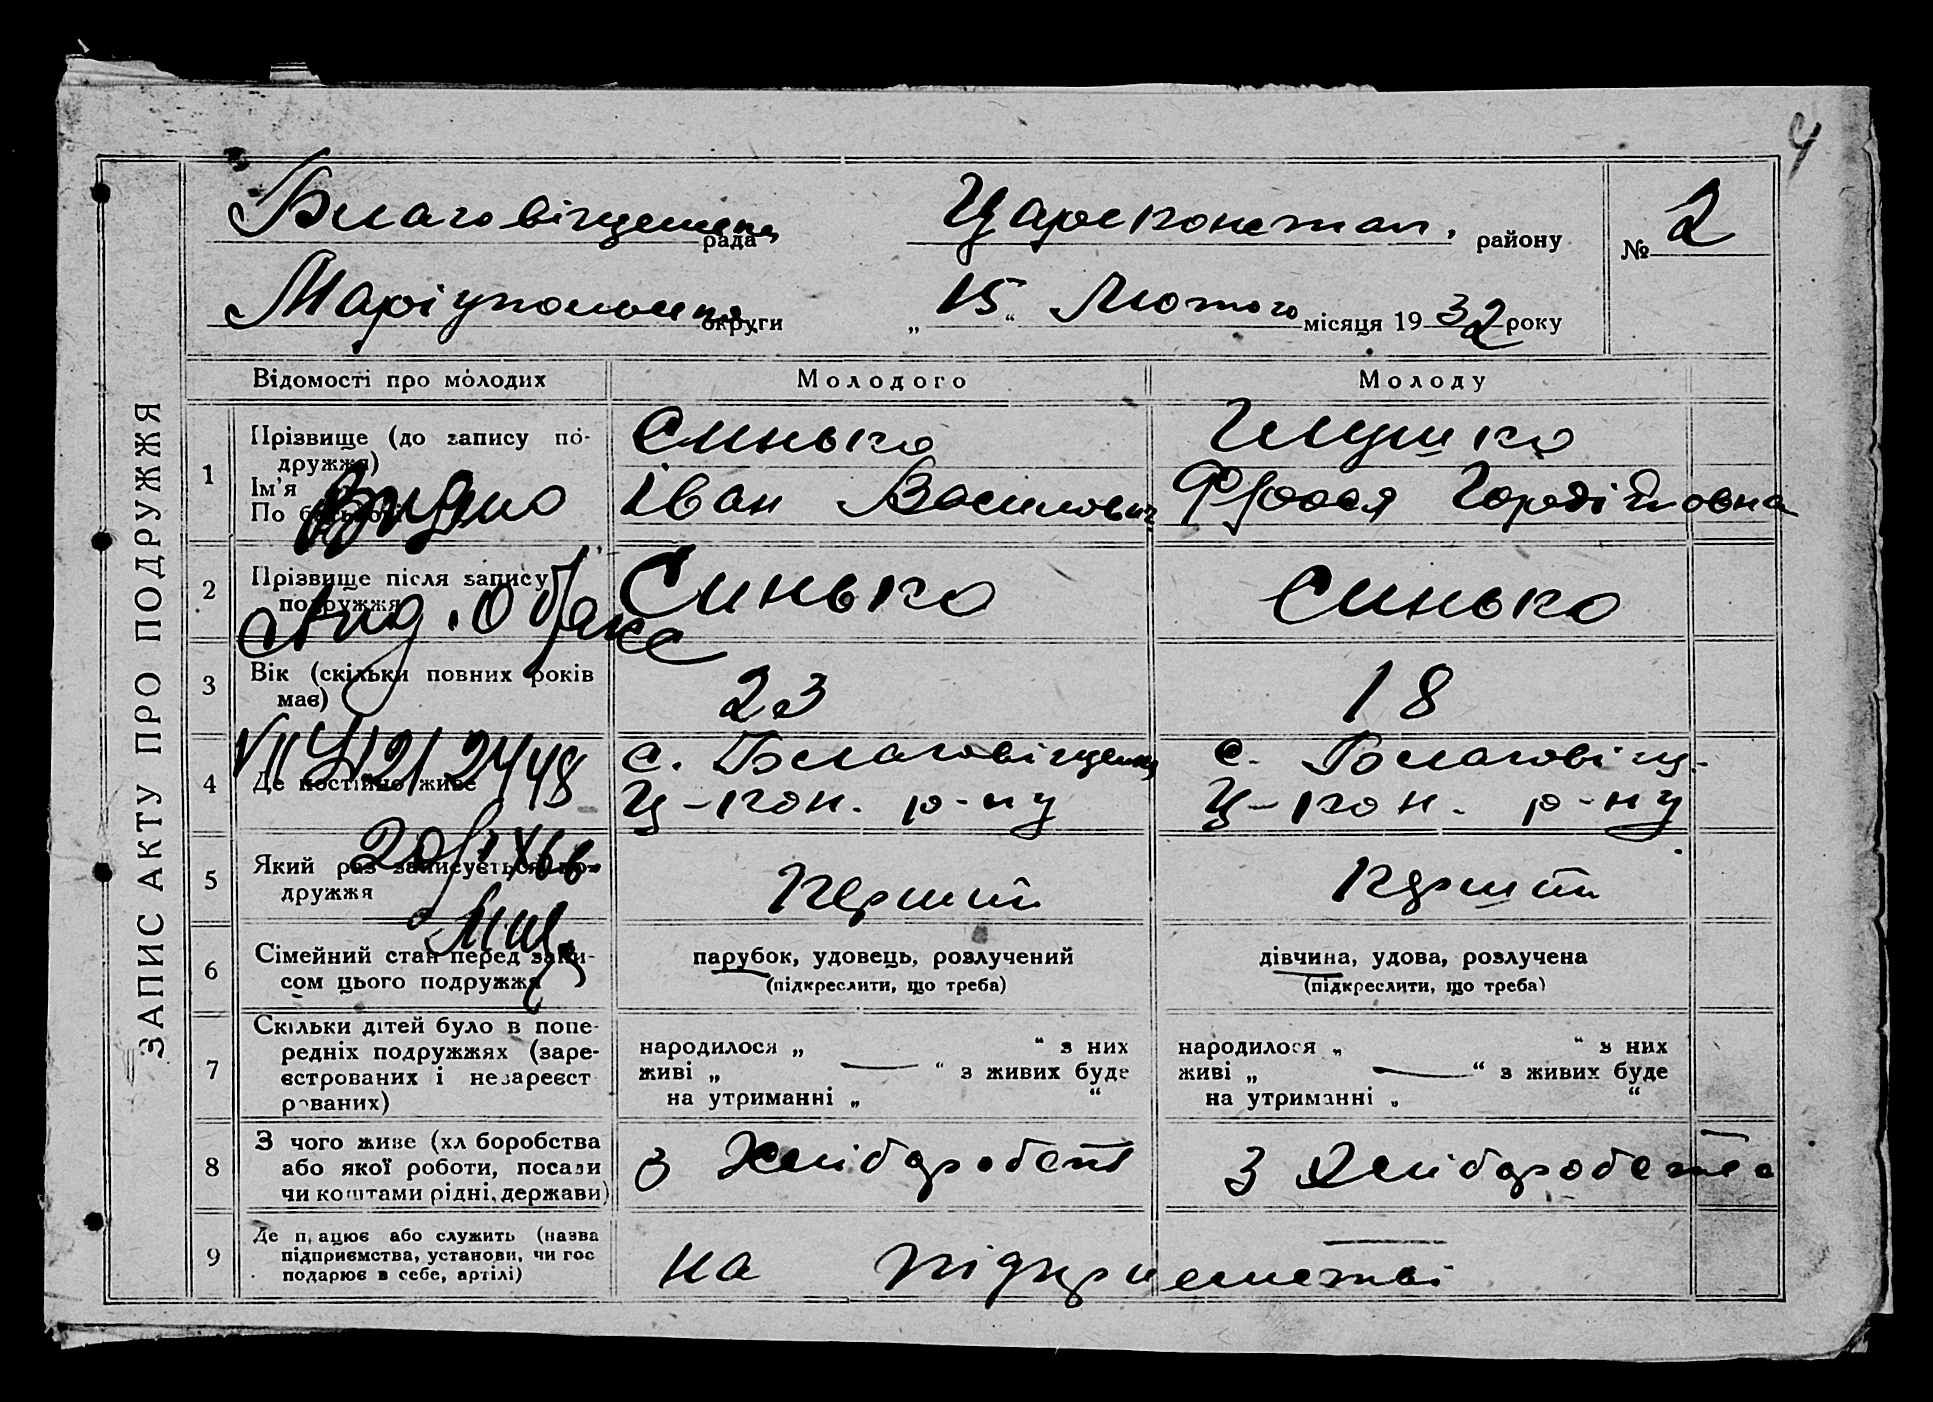 4
Благовіщенськ рада Цареконстан. району № 2
Маріупольськ округи „15“ Лютого місяця 1932 року
ЗАПИС АКТУ ПРО ПОДРУЖЖЯ
Відомості про молодих Молодого Молоду
1 Прізвище (до запису по-
дружжя) Синько
Ім'я
По батькові Іван Василович Фрося Гордіївовна
Видано
2 Прізвище після запису
подружжя Синько Синько
3 Вік (скільки повних років
має) 23 18
4 Де постійно живе с. Благовіщенц с. Благовіщ.
Ц-кон. р-ну Ц-кон. р-ну
5 Який раз записується по-
дружжя Перший Перший
6 Сімейний стан перед запи-
сом цього подружжя парубок, удовець, розлучений дівчина, удова, розлучена
(підкреслити, що треба) (підкреслити, що треба)
7 Скільки дітей було в попе-
редніх подружжях (заре-
єстрованих і незареєст
рованих) народилося „ “ з них народилося „ “ з них
живі „ — “ з живих буде живі „ — “ з живих буде
на утриманні „ “ на утриманні „ “
8 З чого живе (хл боробства
або якої роботи, посади
чи коштами рідні, держави) З Хліборобств З Хліборобства
9 Де працює або служить (назва
підприємства, установи, чи гос
подарює в себе, артілі) на підприємстві —